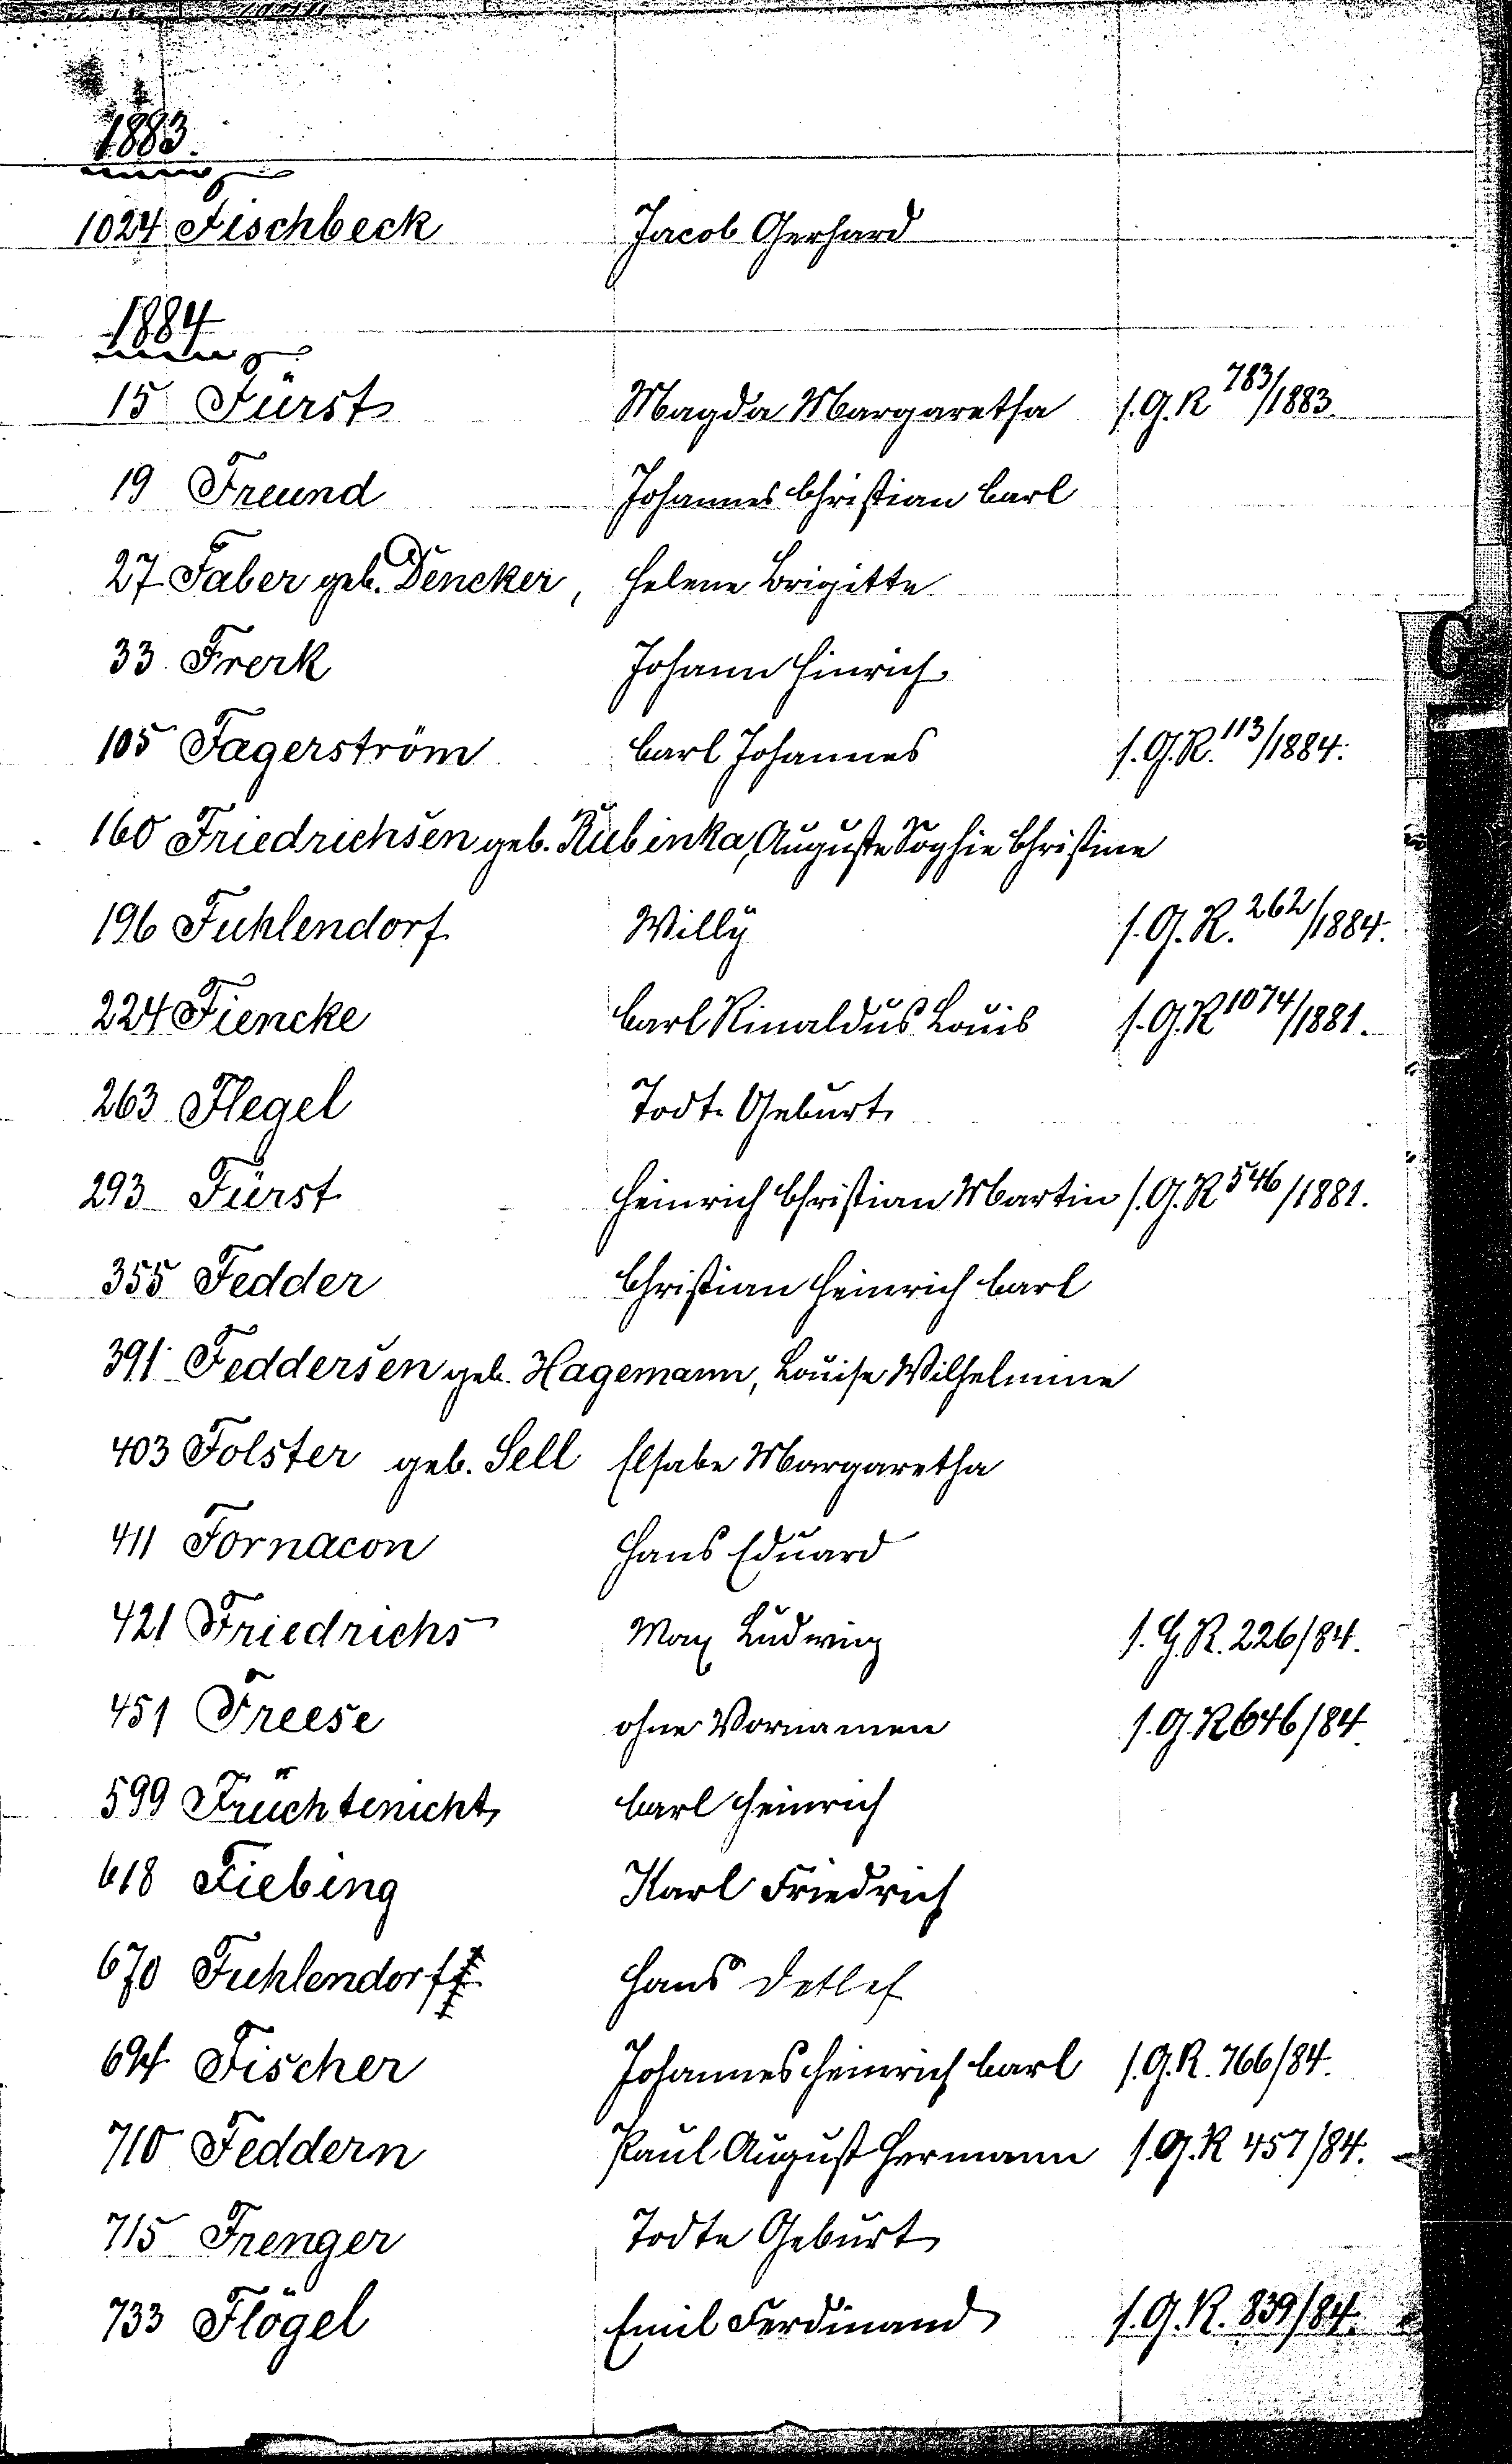 1883.
1024 Fischbeck Jacob Gerhard
1884
15 Fürst Magda Margaretha s. G. R 783/1883.
19 Freund Johannes Christian Carl
27 Faber geb. Dencker, Helene Brigitte
33 Frerk Johann Hinrich
105 Fagerström Carl Johannes s. G. R. 113/1884.
160 Friedrichsen geb. Rubinka, Auguste Sophie Christine
196 Fuhlendorf Willy s. G. R. 262/1884.
224 Fiencke Carl Rinaldus Louis s. G. R 1074/1881.
263 Flegel Todt-Geburt
293 Fürst Heinrich Christian Martin s. G. R 546/1881.
355 Fedder Christian Heinrich Carl
391 Feddersen geb. Hagemann, Louise Wilhelmine
403 Folster geb. Sell Elsabe Margaretha
411 Fornacon Hans Eduard
421 Friedrichs Max Ludwig s. G. R. 226/84.
451 Freese ohne Vornamen s. G. R 646/84.
599 Früchtenicht Carl Heinrich
618 Fiebing Karl Friedrich
670 Fuhlendorf Hans Detlef
694 Fischer Johannes Heinrich Carl s. G. R. 766/84.
710 Feddern Paul August Hermann s. G. R 457/84.
715 Frenger Todte Geburt
733 Flögel Emil Ferdinand s. G. R. 839/84.
G